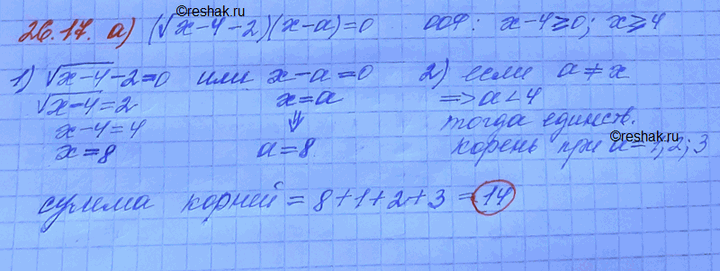 ©reshak.ru
26.17. а) (√x-4 -2)(x-a)=0 ООФ: x-4⩾0; x⩾4
1) √x-4 -2=0 или x-a=0 2) если a≠x
√x-4=2 x=a =>a<4
x-4=4 ⇓ тогда единств.
x=8 a=8 корень при a=1;2;3
©reshak.ru
сумма корней = 8+1+2+3 = 14